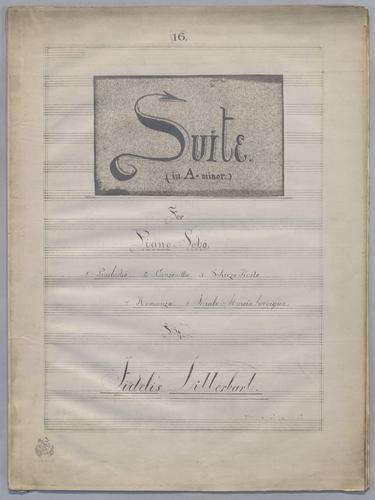 16.
Suite.
(in A-minor.)
For
Piano-Solo.
1. Praeludio 2. Canzonetta 3. Scherzo
4. Romanza 5. Finale-Marcia
By
Fidelis Zitterbart.